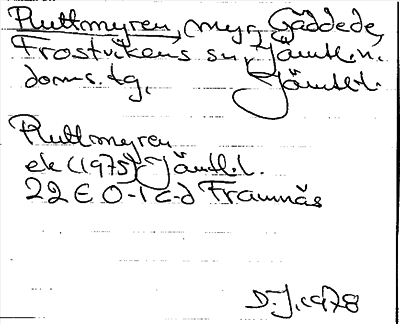 Pluttmyren, myr, Gäddede,
Frostvikens sn, Jämtl. n.
doms. tg, Jämtl.l.
Pluttmyren
ek (1975) Jämtl.l.
22 E 0-1 c-d Frannäs
D.J. 1978